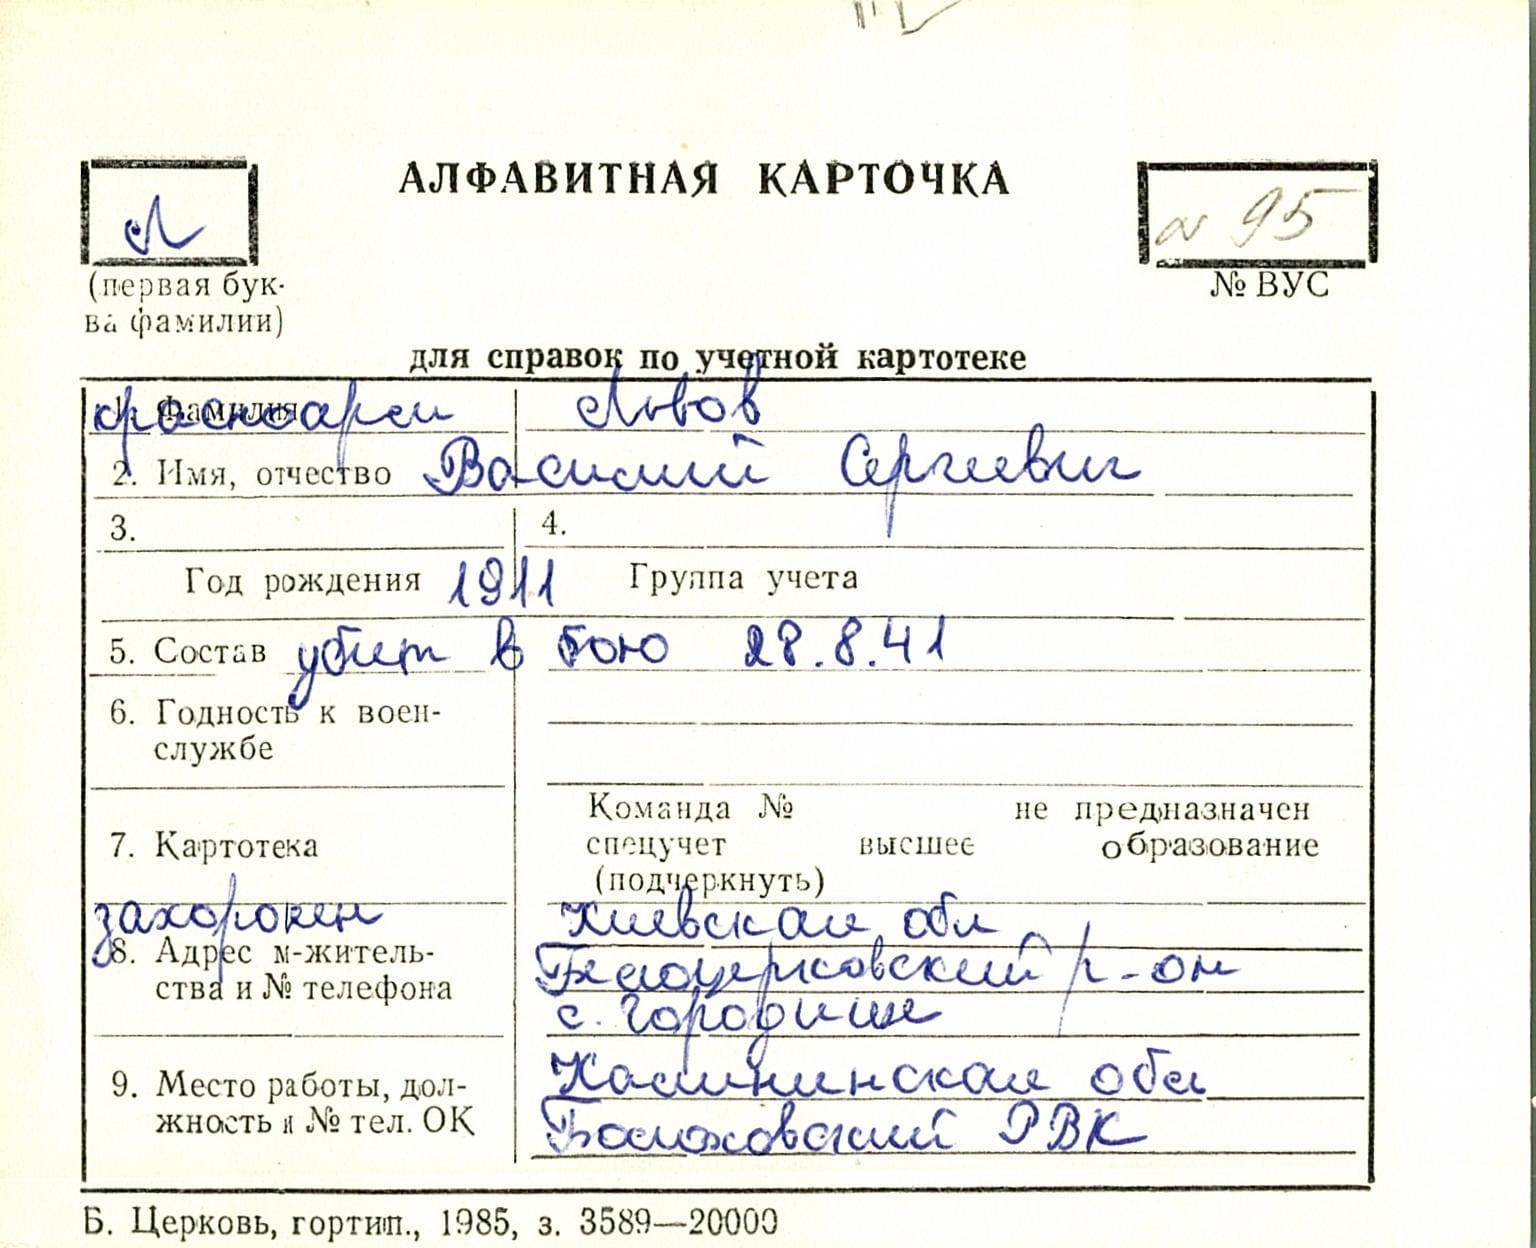 АЛФАВИТНАЯ КАРТОЧКА
Л
№ 95
(первая бук-
ва фамилии)
№ ВУС
для справок по учетной картотеке
1. Фамилия красноарм Львов
2. Имя, отчество Василий Сергеевич
3.
4.
Год рождения 1911 Группа учета
5. Состав убит в бою 28.8.41
6. Годность к воен-
службе
7. Картотека
Команда № не предназначен
спецучет высшее образование
(подчеркнуть)
захоронен Киевская обл
8. Адрес м-житель-
ства и № телефона
Белоцерковский р-он
с. Городище
9. Место работы, дол-
жность и № тел. ОК
Калининская обл
РВК
Б. Церковь, гортип., 1985, з. 3589—20000